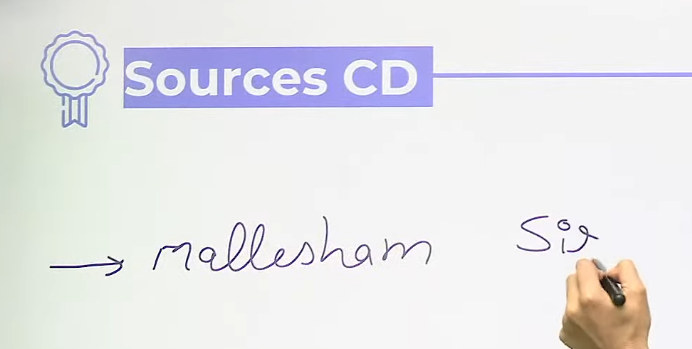 Sources CD
→ Mallesham Sir